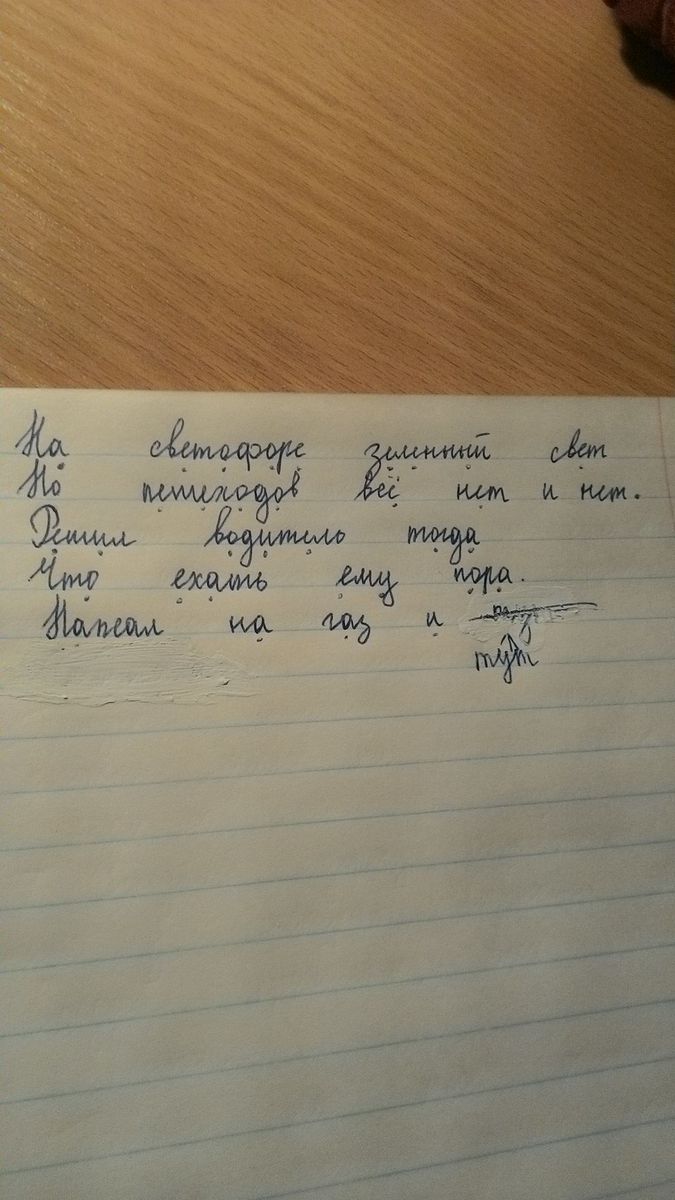 На светофоре зеленный свет
Но пешеходов всё нет и нет.
Решил водитель тогда
Что ехать ему пора.
Нажал на газ и
тут